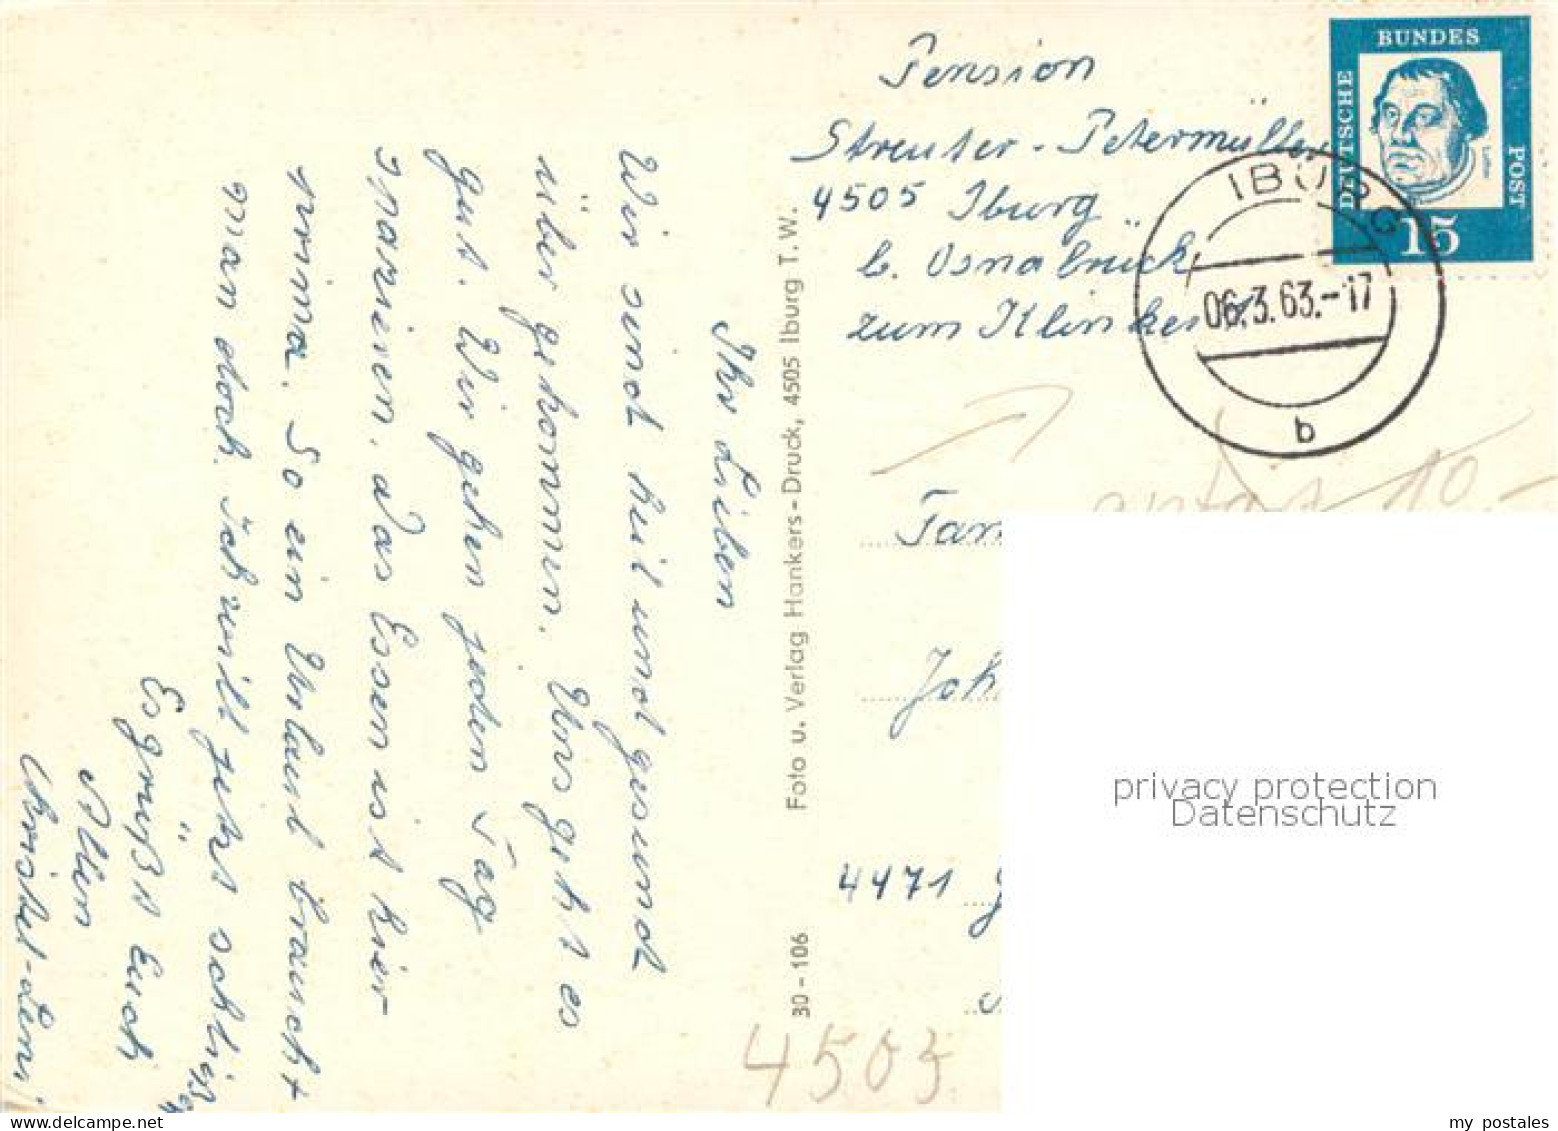 Ihr Lieben
Wir sind heil und gesund
über gekommen. Uns geht es
gut. Wir gehen jeden Tag
spazieren. das Essen ist hier
prima. So ein Urlaub braucht
man doch. Ich will jetzt schließen
Es grüßt Euch
Allen
Christel-Leni
Foto u. Verlag Hankers-Druck, 4505 Iburg T.W.
30-106
Pension
Streuter-Petermüller
4505 Iburg
b. Osnabrück
zum Klinken
DEUTSCHE
BUNDES
POST
Luther
15
IBURG
06.3.63.-17
b
10.-
Fam
Joh
4471
4503
privacy protection
Datenschutz
my postales